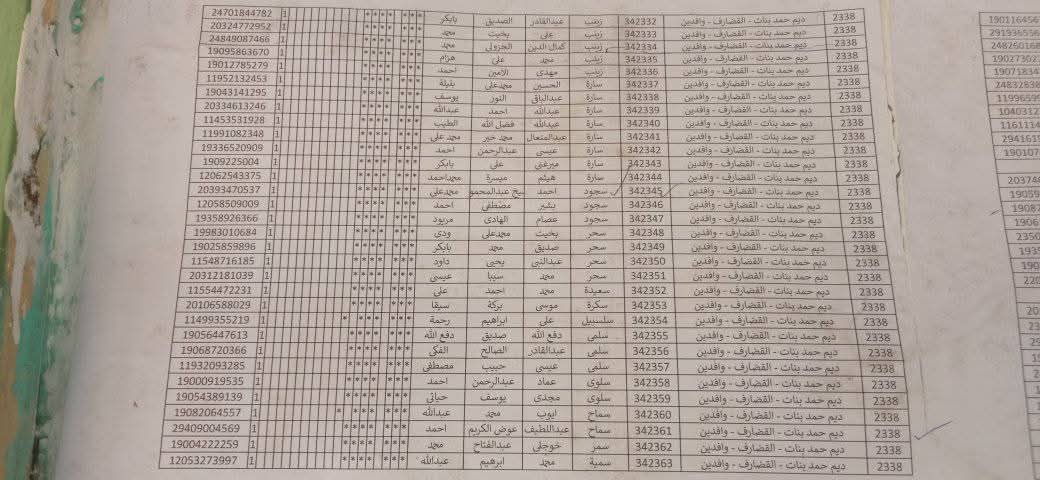 2338 ديم حمد بنات - القضارف - وافدين 342332 زينب عبدالقادر الصديق بابكر *** **** 1 24701844782
2338 ديم حمد بنات - القضارف - وافدين 342333 زينب على بخيت محمد *** **** 1 20324772952
2338 ديم حمد بنات - القضارف - وافدين 342334 زينب كمال الدين الجزولى محمد *** **** 1 24849087466
2338 ديم حمد بنات - القضارف - وافدين 342335 زينب محمد على هزام *** **** 1 19095863670
2338 ديم حمد بنات - القضارف - وافدين 342336 زينب مهدى الامين احمد *** **** 1 19012785279
2338 ديم حمد بنات - القضارف - وافدين 342337 سارة الحسين محمدعلى بليلة *** **** 1 11952132453
2338 ديم حمد بنات - القضارف - وافدين 342338 سارة عبدالباقى النور يوسف *** **** 1 19043141295
2338 ديم حمد بنات - القضارف - وافدين 342339 سارة عبدالله احمد عبدالله *** **** 1 20334613246
2338 ديم حمد بنات - القضارف - وافدين 342340 سارة عبدالله فضل الله الطيب *** **** 1 11453531928
2338 ديم حمد بنات - القضارف - وافدين 342341 سارة عبدالمتعال محمد خير محمد على *** **** 1 11991082348
2338 ديم حمد بنات - القضارف - وافدين 342342 سارة عيسى عبدالرحمن احمد *** **** 1 19336520909
2338 ديم حمد بنات - القضارف - وافدين 342343 سارة ميرغنى على بابكر *** **** 1 1909225004
2338 ديم حمد بنات - القضارف - وافدين 342344 سارة هيثم ميسرة محمداحمد *** **** 1 12062543375
2338 ديم حمد بنات - القضارف - وافدين 342345 سجود احمد يخ عبدالمحمو محمدعلى *** **** 1 20393470537
2338 ديم حمد بنات - القضارف - وافدين 342346 سجود بشير مصطفى احمد *** **** 1 12058509009
2338 ديم حمد بنات - القضارف - وافدين 342347 سجود عصام الهادى مريود *** **** 1 19358926366
2338 ديم حمد بنات - القضارف - وافدين 342348 سحر بخيت محمدعلى ودى *** **** 1 19983010684
2338 ديم حمد بنات - القضارف - وافدين 342349 سحر صديق محمد بابكر *** **** 1 19025859896
2338 ديم حمد بنات - القضارف - وافدين 342350 سحر عبدالنبى يحيى داود *** **** 1 11548716185
2338 ديم حمد بنات - القضارف - وافدين 342351 سحر محمد سيبا عيسى *** **** 1 20312181039
2338 ديم حمد بنات - القضارف - وافدين 342352 سعيدة محمد احمد على *** **** 1 11554472231
2338 ديم حمد بنات - القضارف - وافدين 342353 سكرة موسى بركة سيقا *** **** 1 20106588029
2338 ديم حمد بنات - القضارف - وافدين 342354 سلسبيل على ابراهيم رحمة *** **** * 1 11499355219
2338 ديم حمد بنات - القضارف - وافدين 342355 سلمى دفع الله صديق دفع الله *** **** 1 19056447613
2338 ديم حمد بنات - القضارف - وافدين 342356 سلمى عبدالقادر الصالح الفكى *** **** 1 19068720366
2338 ديم حمد بنات - القضارف - وافدين 342357 سلمى عيسى حبيب مصطفى *** **** 1 11932093285
2338 ديم حمد بنات - القضارف - وافدين 342358 سلوى عماد عبدالرحمن احمد *** **** 1 19000919535
2338 ديم حمد بنات - القضارف - وافدين 342359 سلوى مجدى يوسف حياتى *** **** 1 19054389139
2338 ديم حمد بنات - القضارف - وافدين 342360 سماح ايوب محمد عبدالله *** **** * 1 19082064557
2338 ديم حمد بنات - القضارف - وافدين 342361 سماح عبداللطيف عوض الكريم احمد *** **** 1 29409004569
2338 ديم حمد بنات - القضارف - وافدين 342362 سمر خوجلى عبدالفتاح محمد *** **** 1 19004222259
2338 ديم حمد بنات - القضارف - وافدين 342363 سمية محمد ابرهيم عبدالله *** **** 1 12053273997